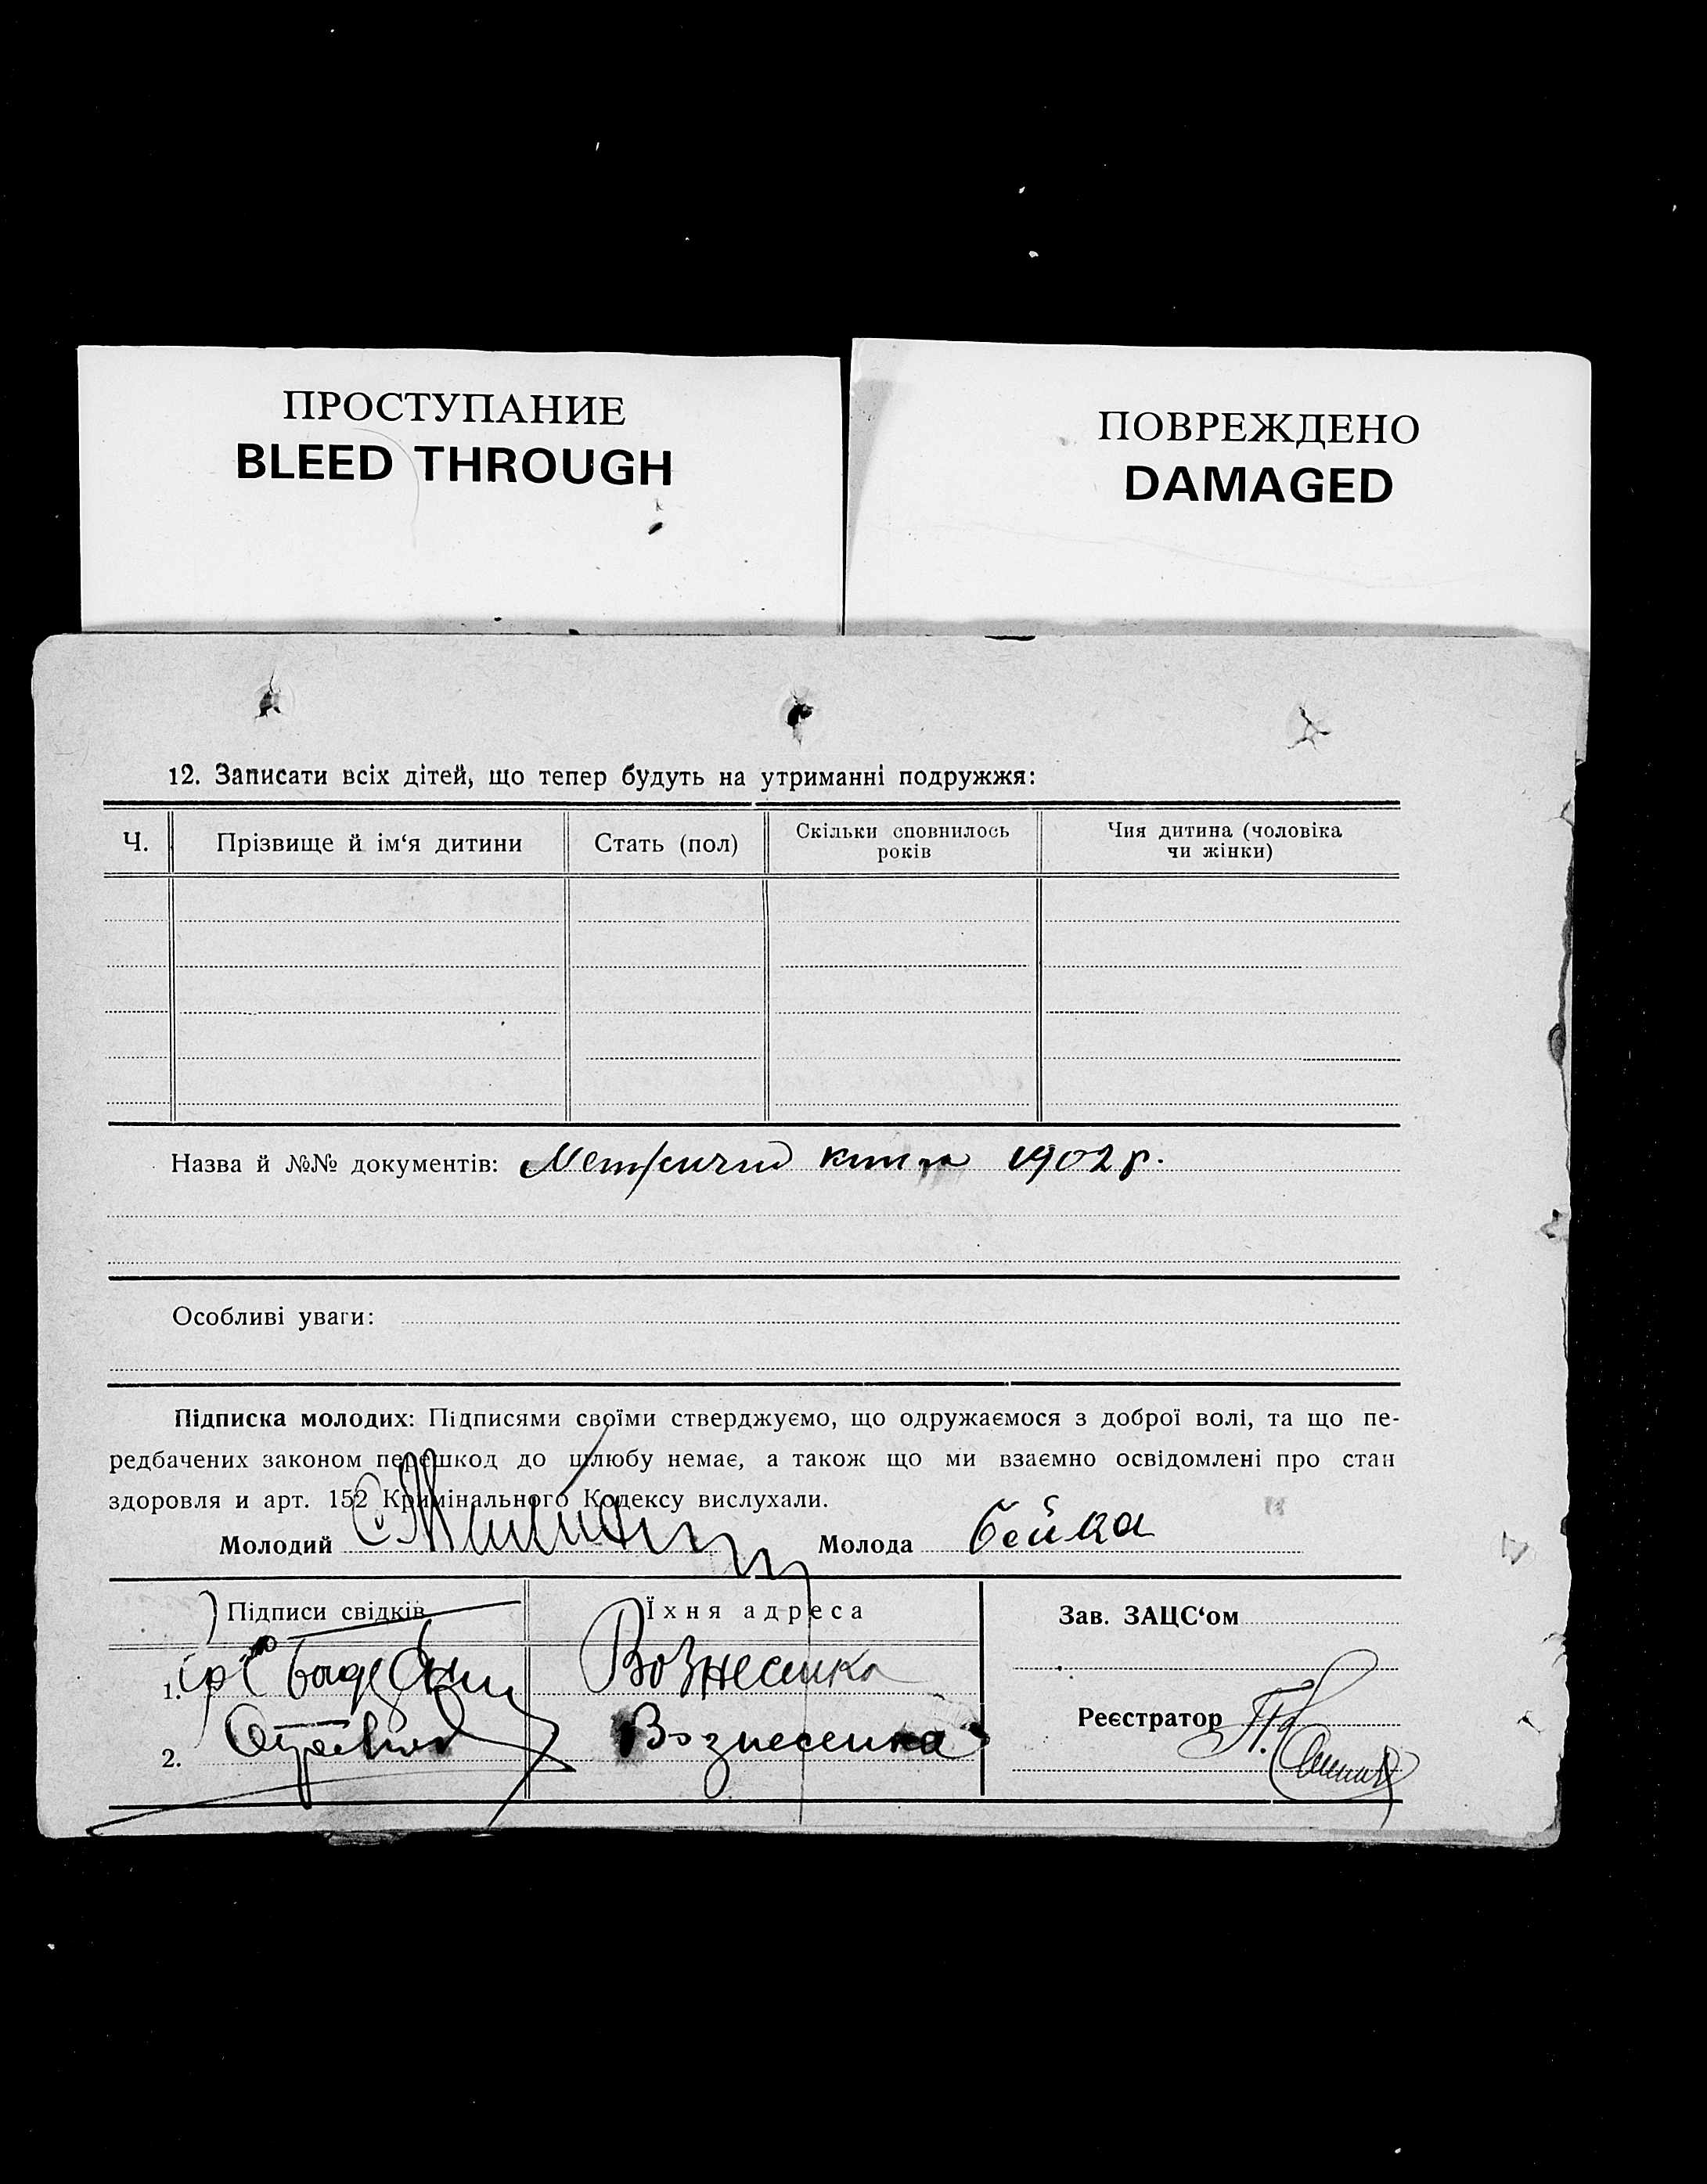 ПРОСТУПАНИЕ
BLEED THROUGH
ПОВРЕЖДЕНО
DAMAGED
12. Записати всіх дітей, що тепер будуть на утриманні подружжя:
Ч.
Прізвище й ім‘я дитини
Стать (пол)
Скільки сповнилось
років
Чия дитина (чоловіка
чи жінки)
Назва й №№ документів: книга 1902 р.
Особливі уваги:
Підписка молодих: Підписями своїми стверджуємо, що одружаємося з доброї волі, та що пе-
редбачених законом перешкод до шлюбу немає, а також що ми взаємно освідомлені про стан
здоровля и арт. 152 Кримінального Кодексу вислухали.
Молодий
Молода бейка
Підписи свідків
Їхня адреса
1. Вознесенка
2. Вознесенка
Зав. ЗАЦС‘ом
Реєстратор